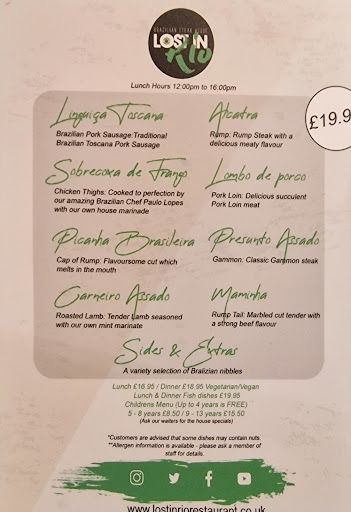 BRAZILIAN STEAK HOUSE
LOST IN
Rio
Lunch Hours 12:00pm to 16:00pm
£19.9
Linguiça Toscana
Brazilian Pork Sausage:Traditional
Brazilian Toscana Pork Sausage
Alcatra
Rump: Rump Steak with a
delicious meaty flavour
Sobrecoxa de Frango
Chicken Thighs: Cooked to perfection by
our amazing Brazilian Chef Paulo Lopes
with our own house marinade
Lombo de porco
Pork Loin: Delicious succulent
Pork Loin meat
Picanha Brasileira
Cap of Rump: Flavoursome cut which
melts in the mouth
Presunto Assado
Gammon: Classic Gammon steak
Carneiro Assado
Roasted Lamb: Tender Lamb seasoned
with our own mint marinate
Maminha
Rump Tail: Marbled cut tender with
a strong beef flavour
Sides & Extras
A variety selection of Bralizian nibbles
Lunch £16.95 / Dinner £18.95 Vegetarian/Vegan
Lunch & Dinner Fish dishes £19.95
Childrens Menu (Up to 4 years is FREE)
5 - 8 years £8.50 / 9 - 13 years £15.50
(Ask our waiters for the house specials)
*Customers are advised that some dishes may contain nuts.
**Allergen information is available - please ask a member of
staff for details.
www.lostinriorestaurant.co.uk